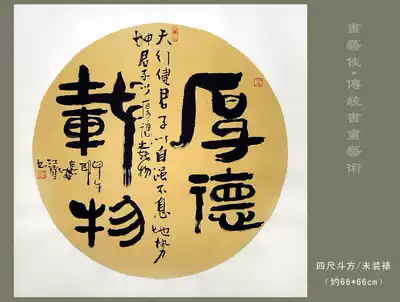 厚德
載物
天行健君子以自强不息地势
坤君子以厚德載物
甲午
畫藝佳·傳統書畫藝術
四尺斗方/未装裱
(约66*66cm)